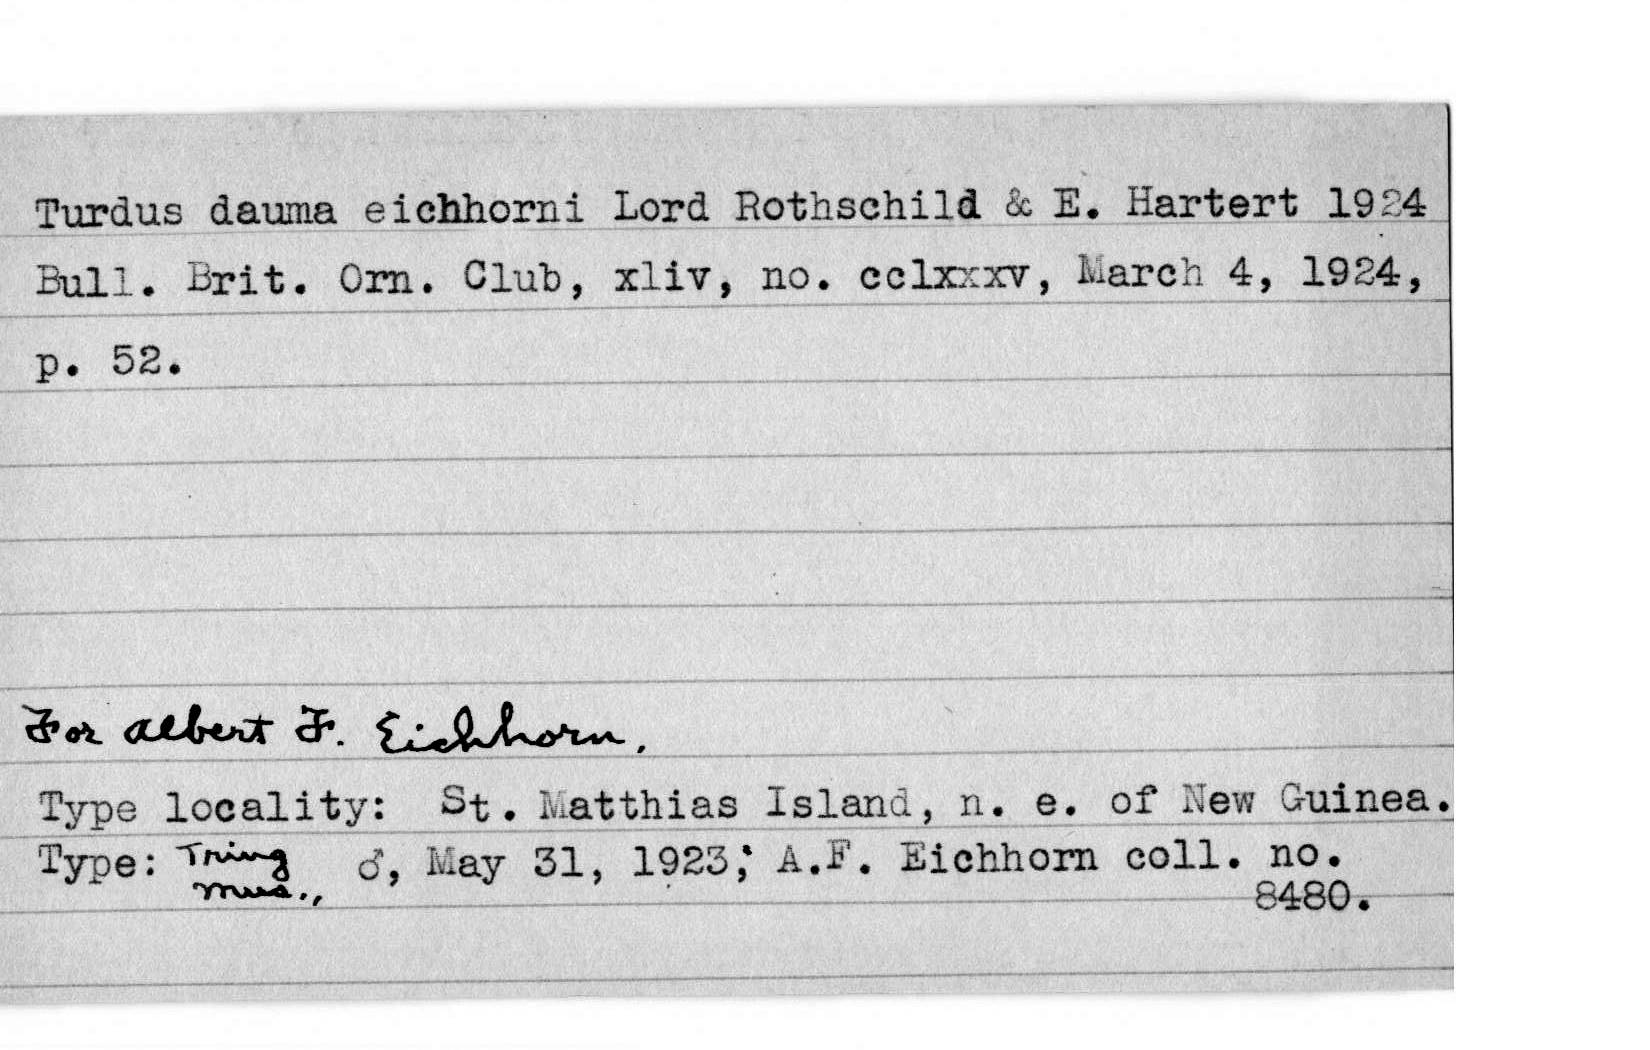 Turdus dauma eichhorni Lord Rothschild & E. Hartert 1924
Bull. Brit. Orn. Club, xliv, no. cclxxxv, March 4, 1924,
p. 52.
For Albert F. Eichhorn.
Type locality: St. Matthias Island, n. e. of New Guinea.
Type: Tring Mus., ♂, May 31, 1923; A.F. Eichhorn coll. no.
8480.